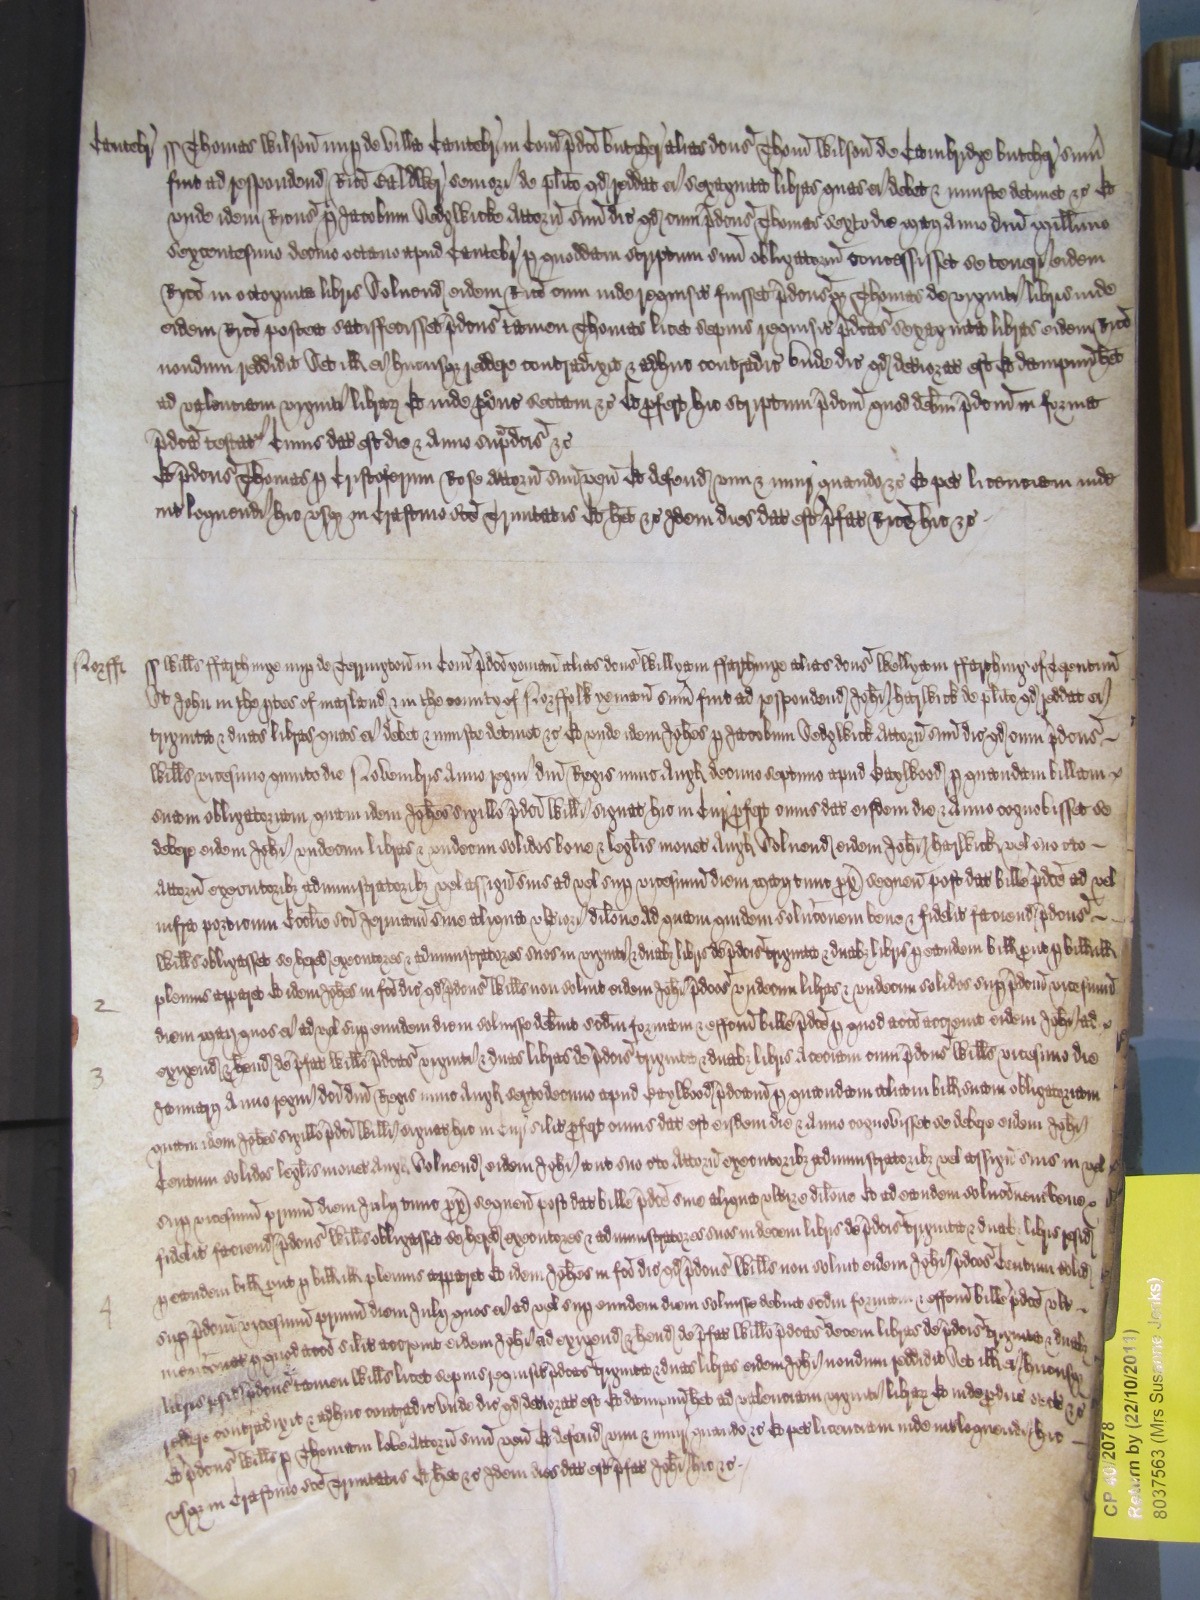 Cantebr ss Thomas Wilson nup de villa Cantebr in Com pdco butcher alias dcus Thom Wilson de Cambridge butcher sum
fuit ad respondend Rico seniori de plito qd reddat ei sexaginta libras quas ei debet & iniuste detinet &c Et
unde idem Ricus p Jacobum Sedgwicke Attorn suu dic qd cum pdcus Thomas sexto die May Anno dni Millimo
sexcentesimo decimo octavo apud Cantebr p quoddam scriptum suu obligatoriu concessisset se teneri eidem
Rico in octoginta libris Solvend eidem Rico cum inde requisit fuisset pdcusq Thomas de viginti libris inde
eidem Rico postea satisfecisset pdcus tamen Thomas licet sepius requisit pdcas sexaginta libras eidem Rico
nondum reddidit Set ill ei hucusq reddere contradixit & adhuc contradic Unde dic qd deteriorat est Et dampnum het
ad valenciam viginti librar Et inde pduc sectam &c Et pfert hic scriptum pdcm quod debitu pdcm in forma
pdca testat Cuius dat est die & Anno supdcis &c
Et pdcus Thomas p Cristoferum Rose Attorn suu ven Et defend vim & iniur quando &c Et pet licenciam inde
intloquendi hic usq in Crastino sce Trinitatis Et het &c Idem dies dat est pfat Rico hic &c
Norff ss Wills ffarthinge nup de Terrington in Com pdco yoman alias dcus Willyam ffarthinge alias dcus Wellyam ffarthing of
St John in the ptes of marland & in the county of Norffolk yeman sum fuit ad respondend Johi Harwick de plito qd reddat ei
triginta & duas libras quas ei debet & iniuste detinet &c Et unde idem Johes p Jacobum Sedgwick Attorn suu dic qd cum pdcus
Wills vicesimo quinto die Novembris Anno regni dni Regis nunc Angl decimo septimo apud p quandam billam
suam obligatoriam quam idem Johes sigillo pdci Willi signat hic in Cur pfert cuius dat eisdem die & Anno cognovisset se
debere eidem Johi undecim libras & undecim solidos bone & legalis monet Angl Solvend eidem Johi Harwick vel suo cto
Attorn executoribz administratoribz vel assign suis ad vel sup vicesimu diem May tunc px sequen post dat bille pdce ad vel
infra porticum Ecclie sci Germani sine aliqua ulteriori dilone Ad quam quidem solucionem bene & fidelit faciend pdcus
Wills obligasset se hered executores & administratores suos in viginti & duabz libris de pdcis triginta & duabz libris p eandem bill put p bill ill
plenius apparet Et idem Johes in fco dic qd pdcus Wills non solvit eidem Johi pdcos undecim libras & undecim solidos sup pdcm vicesimu
diem May quos ei ad vel sup eundem diem solvisse debuit scdm formam & effcum bille pdce p quod acco accrevit eidem Johi ad
exigend & hend de pfat Willo pdcas viginti & duas libras de pdcis triginta & duabz libris Acetiam cum pdcus Wills vicesimo die
January Anno regni dci dni Regis nunc Angl sextodecimo apud pdcam p quandam aliam bill suam obligatoriam
quam idem Johes sigillo pdci Willi signat hic in Cur silit pfert cuius dat est eisdem die & Anno cognovisset se debere eidem Johi
Centum solidos legalis monet Angl Solvend eidem Johi aut suo cto Attorn executoribz administratoribz vel assign suis in vel
sup vicesimu primu diem July tunc px sequen post dat bille pdce sine aliqua ulteriore dilone Et ad eandem solucionem bene &
fidelit faciend pdcus Wills obligasset se hered executores & administratores suos in decem libris de pdcis triginta & duabz libris resid
p eandem bill put p bill ill plenius apparet Et idem Johes in fco dic qd pdcus Wills non solvit eidem Johi pdcos Centum solid
sup pdcm vicesimu primu diem July quos ei ad vel sup eundem diem solvisse debuit scdm formam & effcum bille pdce ult
menconat p quod acco silit accrevit eidem Johi ad exigend & hend de pfat Willo pdcas decem libras de pdcis triginta & duabz
libris resid pdcus tamen Wills licet sepius requisit pdcas triginta & duas libras eidem Johi nondum reddidit Set ill ei hucusq
reddere contradixit & adhuc contradic Unde dic qd deteriorat est Et dampnum het ad valenciam viginti librar Et inde pduc sect &c
Et pdcus Wills p Thomam Attorn suu ven Et defend vim & iniur quando &c Et pet licenciam inde intloquendi hic
usq in Crastino sce Trinitatis Et het &c Idem dies dat est pfat Johi hic &c
2
3
4
CP 40/2078
Return by (22/10/2011)
8037563 (Mrs Susanne Jenks)